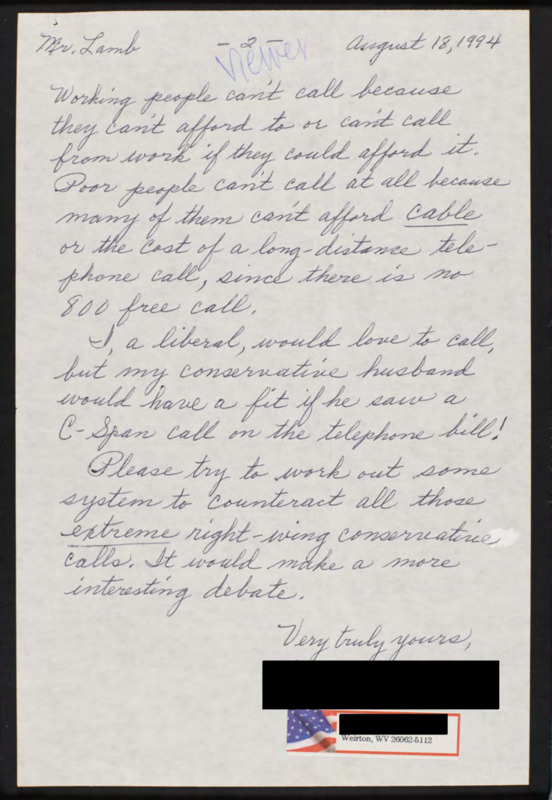 Mr. Lamb - 2 - August 18, 1994
viewer
Working people can't call because
they can't afford to or can't call
from work if they could afford it.
Poor people can't call at all because
many of them can't afford cable
or the cost of a long-distance tele-
phone call, since there is no
800 free call.
I, a liberal, would love to call,
but my conservative husband
would have a fit if he saw a
C-Span call on the telephone bill!
Please try to work out some
system to counteract all those
extreme right-wing conservative
calls. It would make a more
interesting debate.
Very truly yours,
Weirton, WV 26062-5112